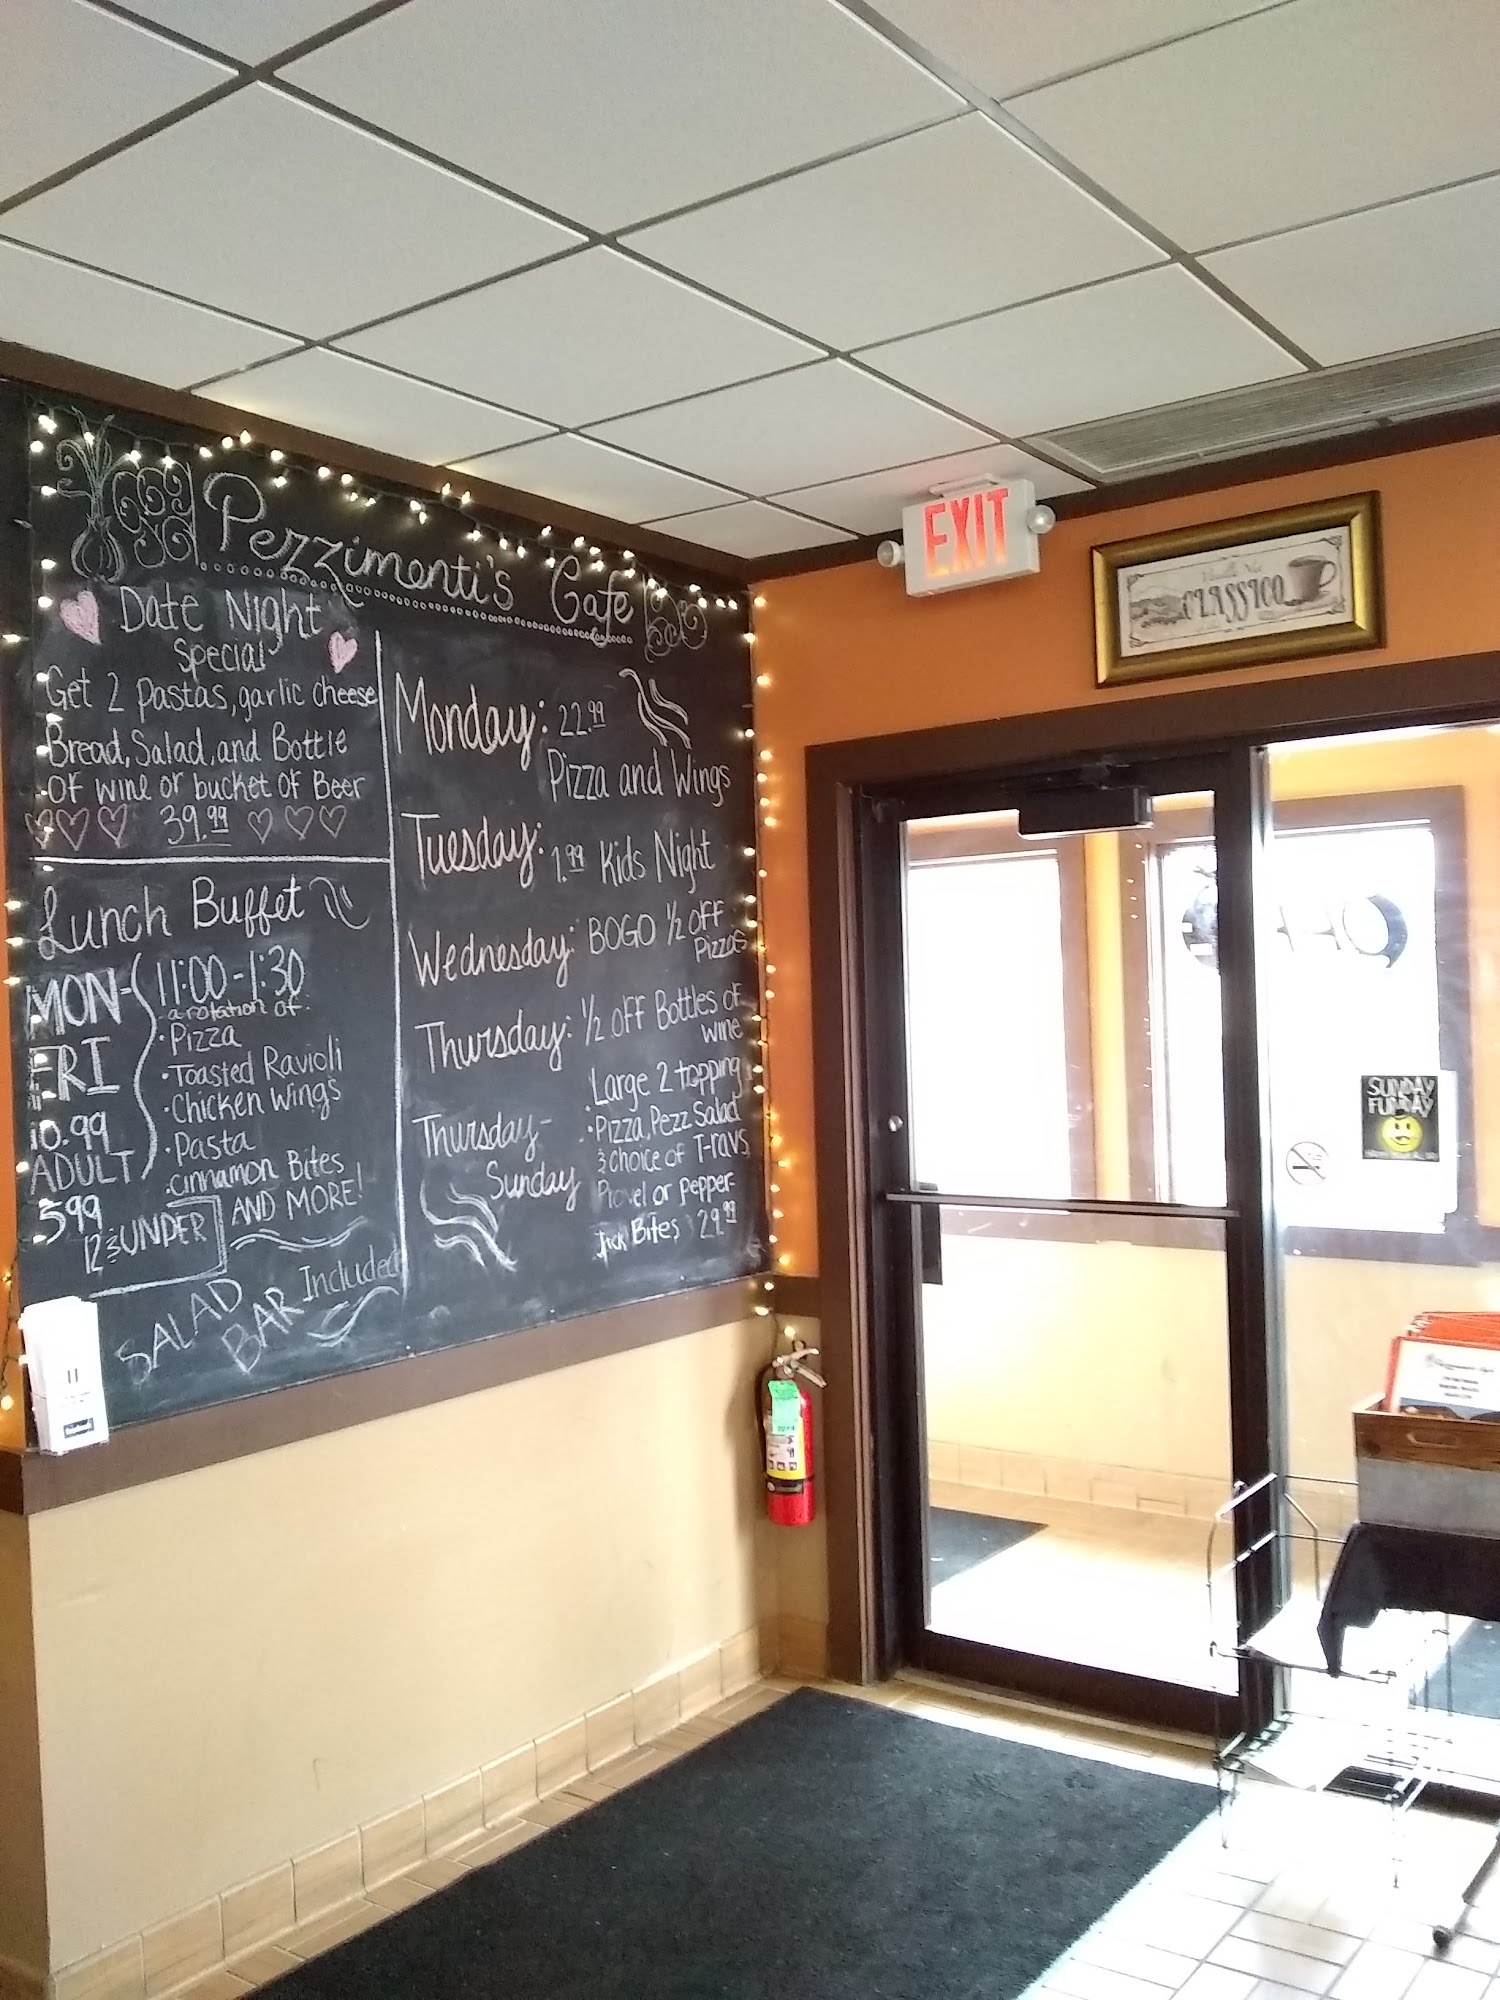 Pezzimenti's Cafe
Date Night
Special
Get 2 Pastas, garlic cheese
Bread, Salad, and Bottle
of wine or bucket of Beer
39.99
Lunch Buffet
MON-
FRI
10.99
ADULT
5.99
12 & UNDER
11:00-1:30
a rotation of:
• Pizza
• Toasted Ravioli
• Chicken Wings
• Pasta
• cinnamon Bites
AND MORE!
SALAD
BAR Included
Monday: 22.99
Pizza and Wings
Tuesday: 1.99 Kids Night
Wednesday: BOGO 1/2 OFF
Pizzas
Thursday: 1/2 OFF Bottles of
wine
Thursday-
Sunday
• Large 2 topping
• Pizza, Pezz Salad
& choice of T-ravs,
Provel or pepper-
jack Bites 29.99
EXIT
CLASSICO
OPEN
SUNDAY
FUNDAY